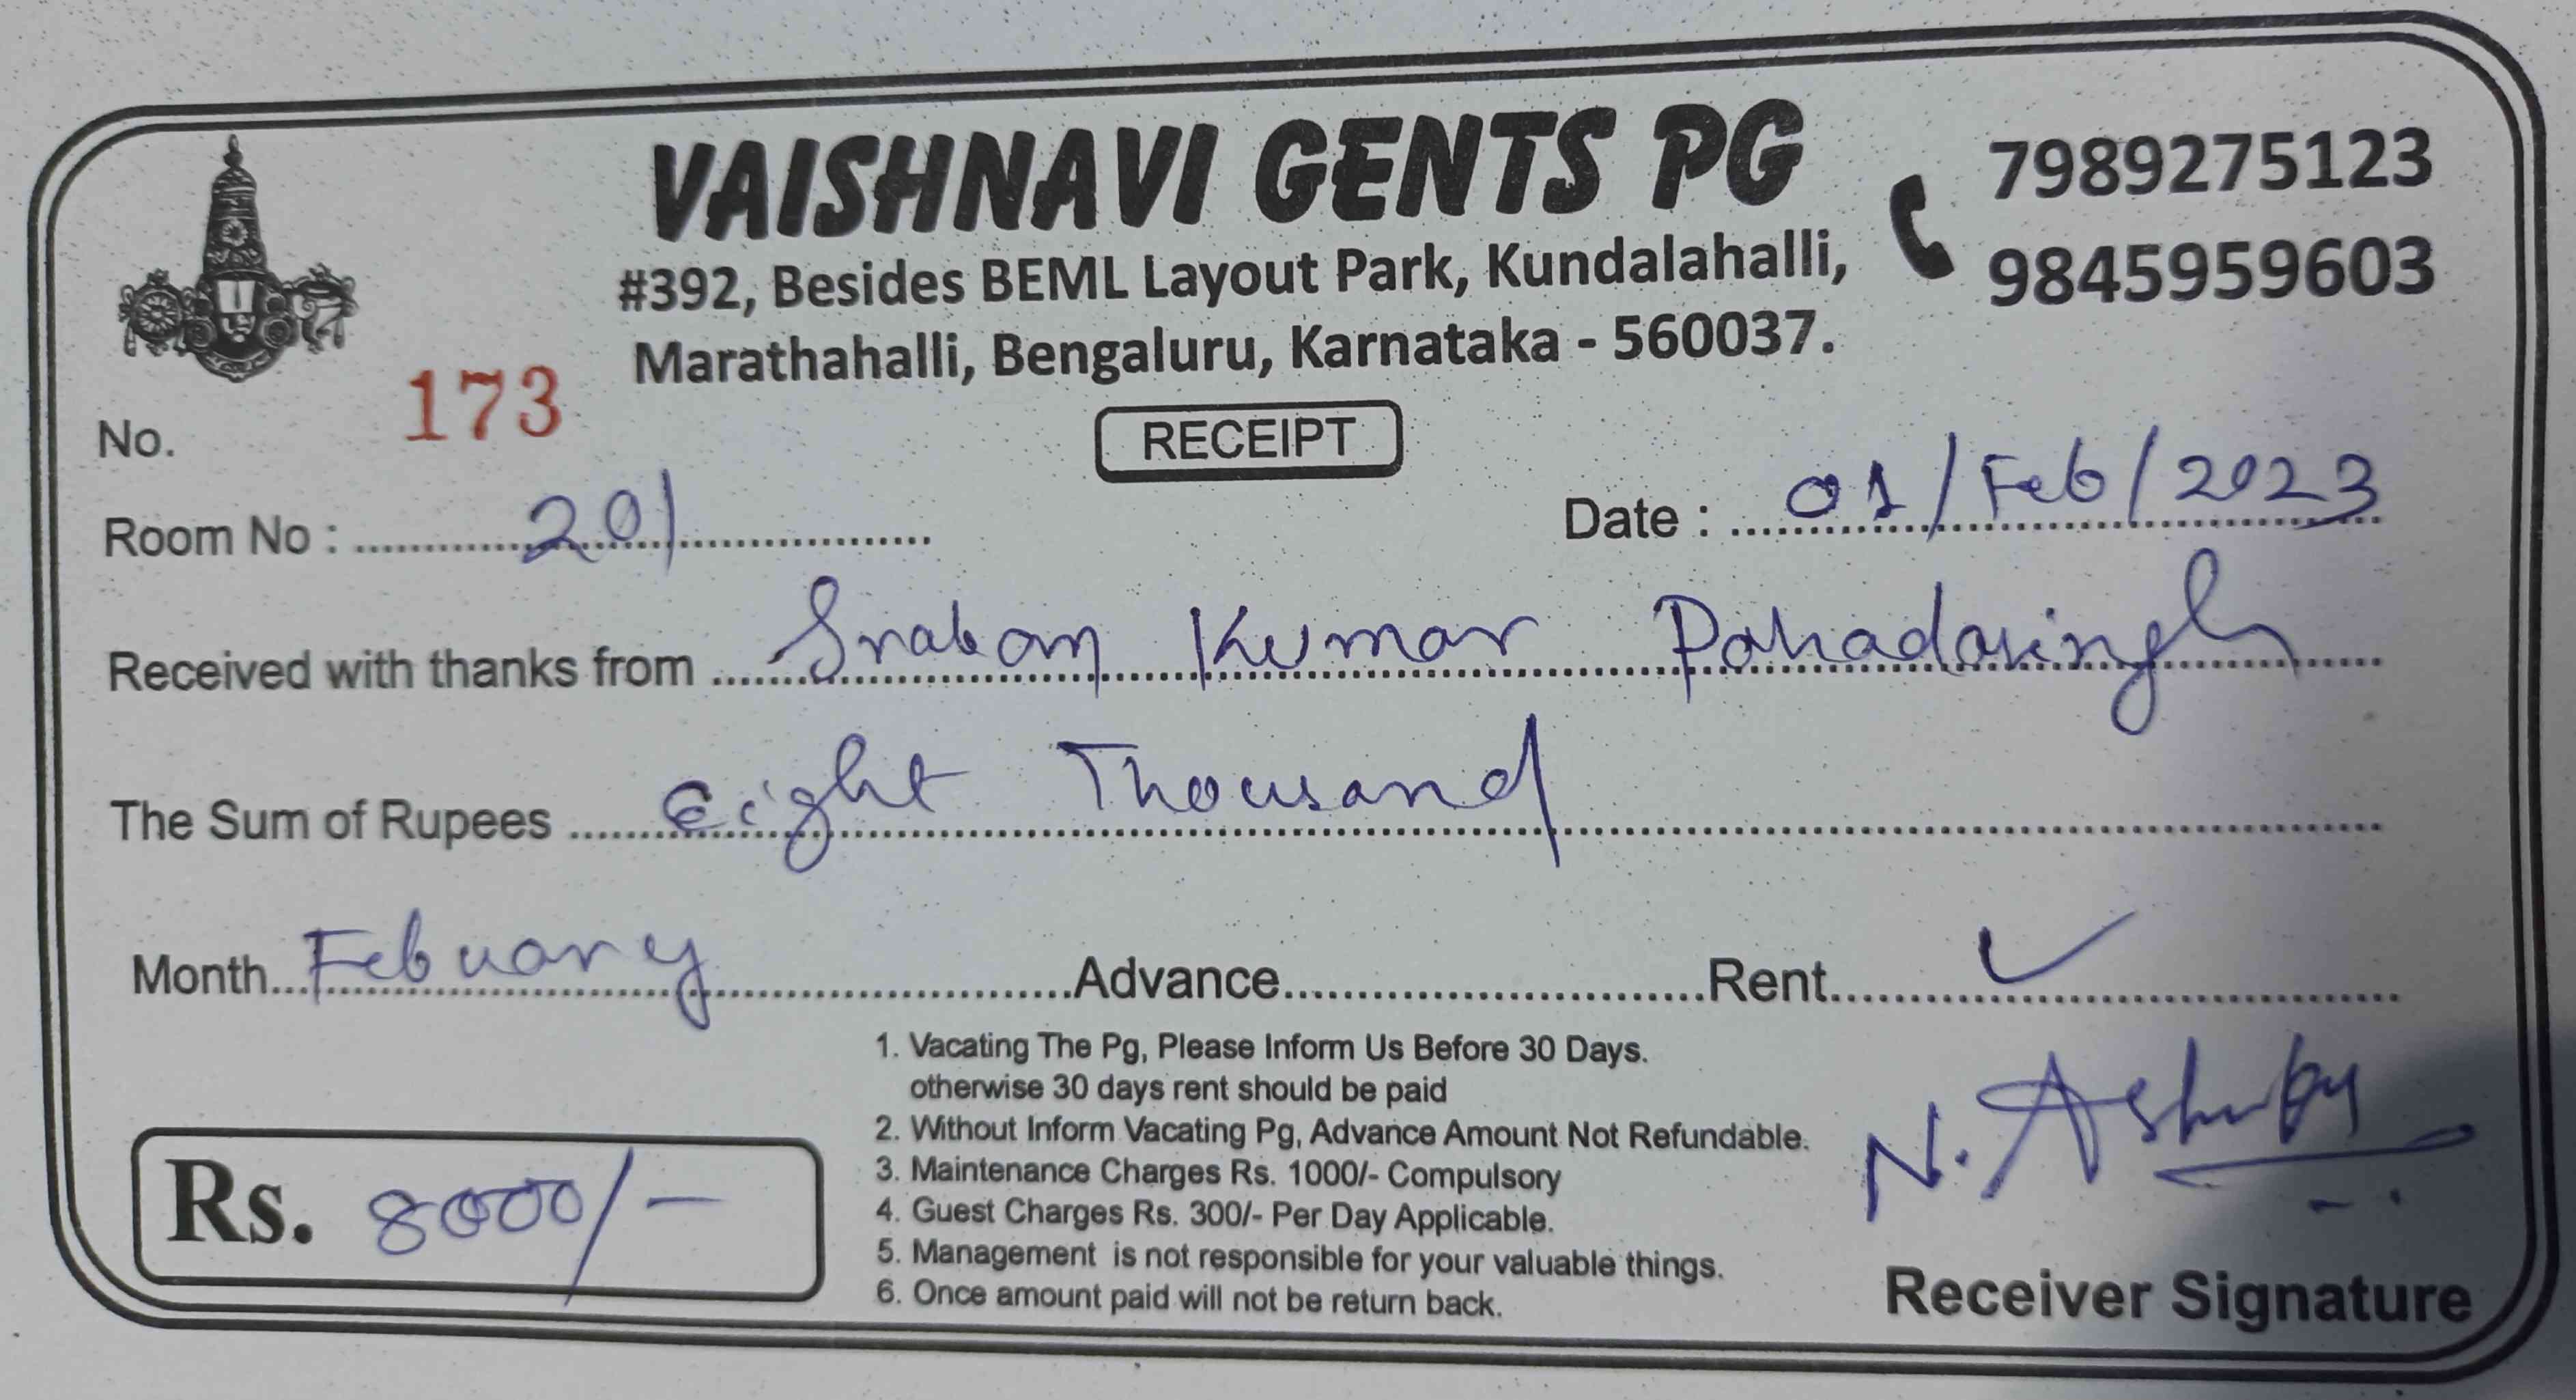 VAISHNAVI GENTS PG
7989275123
9845959603
#392, Besides BEML Layout Park, Kundalahalli,
Marathahalli, Bengaluru, Karnataka - 560037.
No. 173
RECEIPT
Room No : 201
Date : 01/Feb/2023
Received with thanks from Sraban Kumar Pahadasingh
The Sum of Rupees Eight Thousand
Month Febuary Advance Rent ✓
1. Vacating The Pg, Please Inform Us Before 30 Days.
otherwise 30 days rent should be paid
2. Without Inform Vacating Pg, Advance Amount Not Refundable.
3. Maintenance Charges Rs. 1000/- Compulsory
4. Guest Charges Rs. 300/- Per Day Applicable.
5. Management is not responsible for your valuable things.
6. Once amount paid will not be return back.
Rs. 8000/-
N.
Receiver Signature